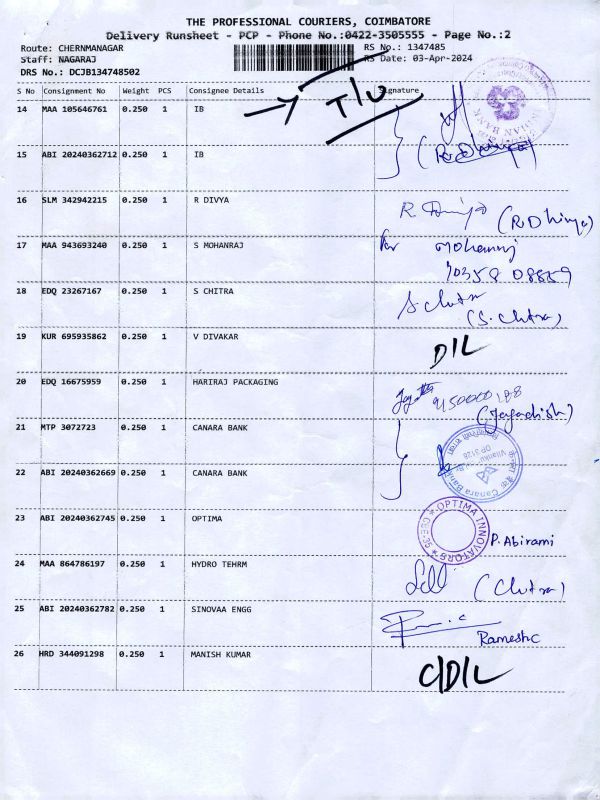 THE PROFESSIONAL COURIERS, COIMBATORE
Delivery Runsheet - PCP - Phone No.:0422-3505555 - Page No.:2
Route: CHERNMANAGAR RS No.: 1347485
Staff: NAGARAJ RS Date: 03-Apr-2024
DRS No.: DCJB134748502
S No Consignment No Weight PCS Consignee Details Signature
T/U
14 MAA 105646761 0.250 1 IB
15 ABI 20240362712 0.250 1 IB
16 SLM 342942215 0.250 1 R DIVYA
17 MAA 943693240 0.250 1 S MOHANRAJ
18 EDQ 23267167 0.250 1 S CHITRA (S. Chitra)
19 KUR 695935862 0.250 1 V DIVAKAR D/L
20 EDQ 16675959 0.250 1 HARIRAJ PACKAGING (Jagadish)
21 MTP 3072723 0.250 1 CANARA BANK
22 ABI 20240362669 0.250 1 CANARA BANK
23 ABI 20240362745 0.250 1 OPTIMA OPTIMA INNOVATORS P. Abirami
24 MAA 864786197 0.250 1 HYDRO TEHRM (Chitra)
25 ABI 20240362782 0.250 1 SINOVAA ENGG Ramesh C
26 HRD 344091298 0.250 1 MANISH KUMAR C/D/L